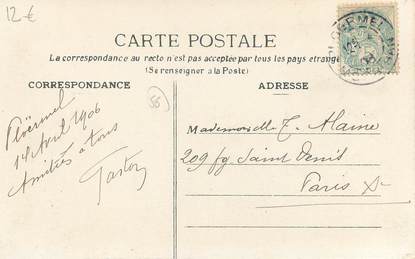 12 €
CARTE POSTALE
La correspondance au recto n'est pas acceptée par tous les pays étrange
(Se renseigner à la Poste)
CORRESPONDANCE
ADRESSE
56
Ploërmel
14 Avril 1906
Amitiés à tous
Gaston
Mademoiselle T. Alaine
209 fg Saint Denis
Paris X
PLOERMEL